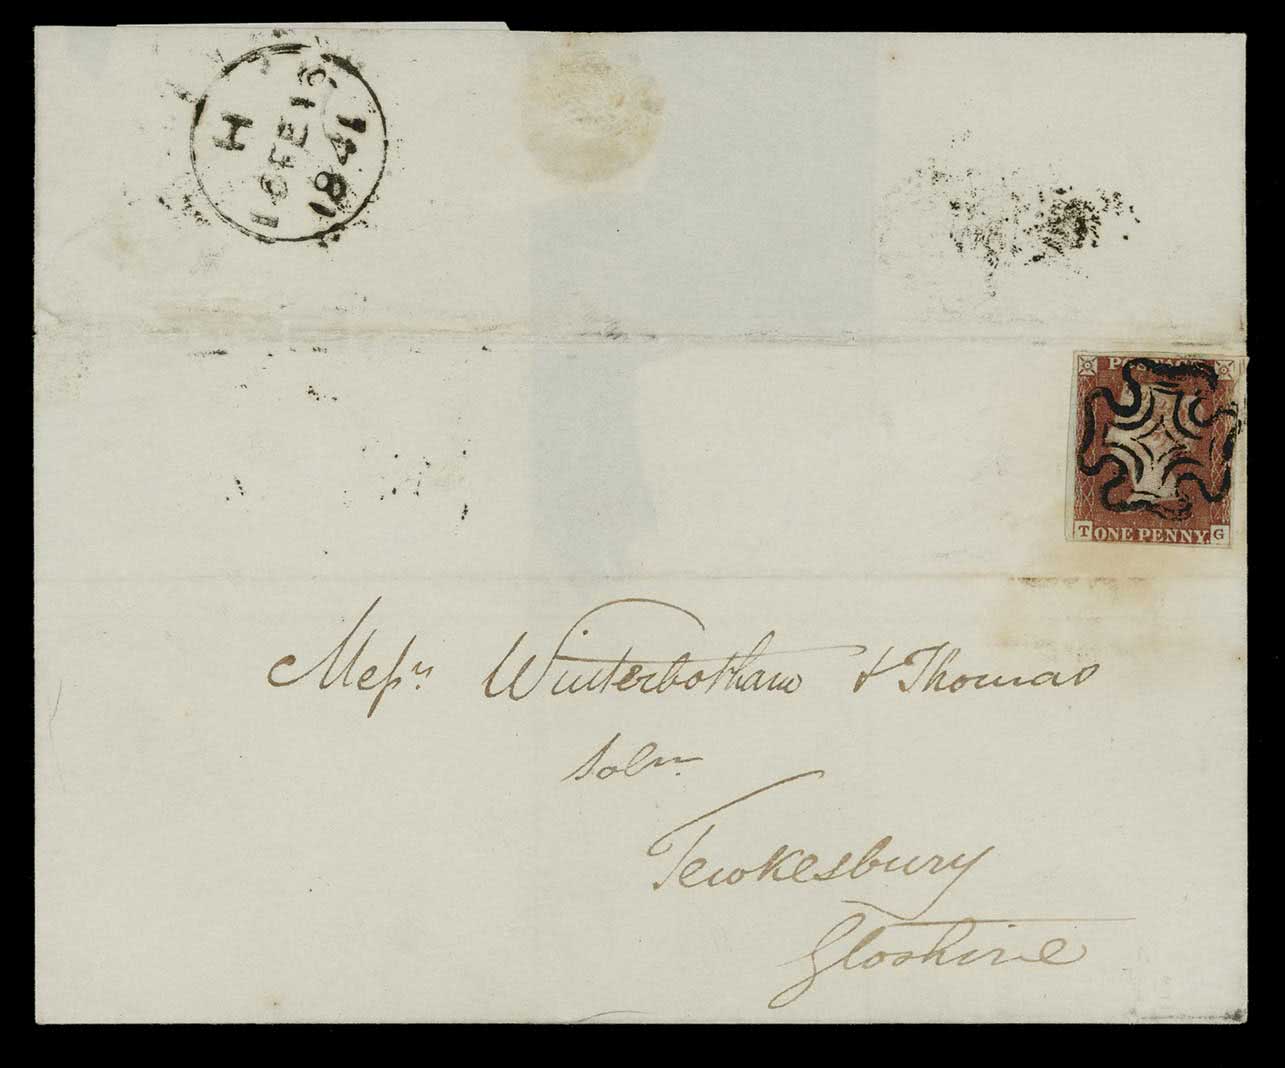 H
16 FE 16
1841
POSTAGE
T ONE PENNY. G
Messrs Winterbotham & Thomas
Solrs
Tewkesbury
Gloshire